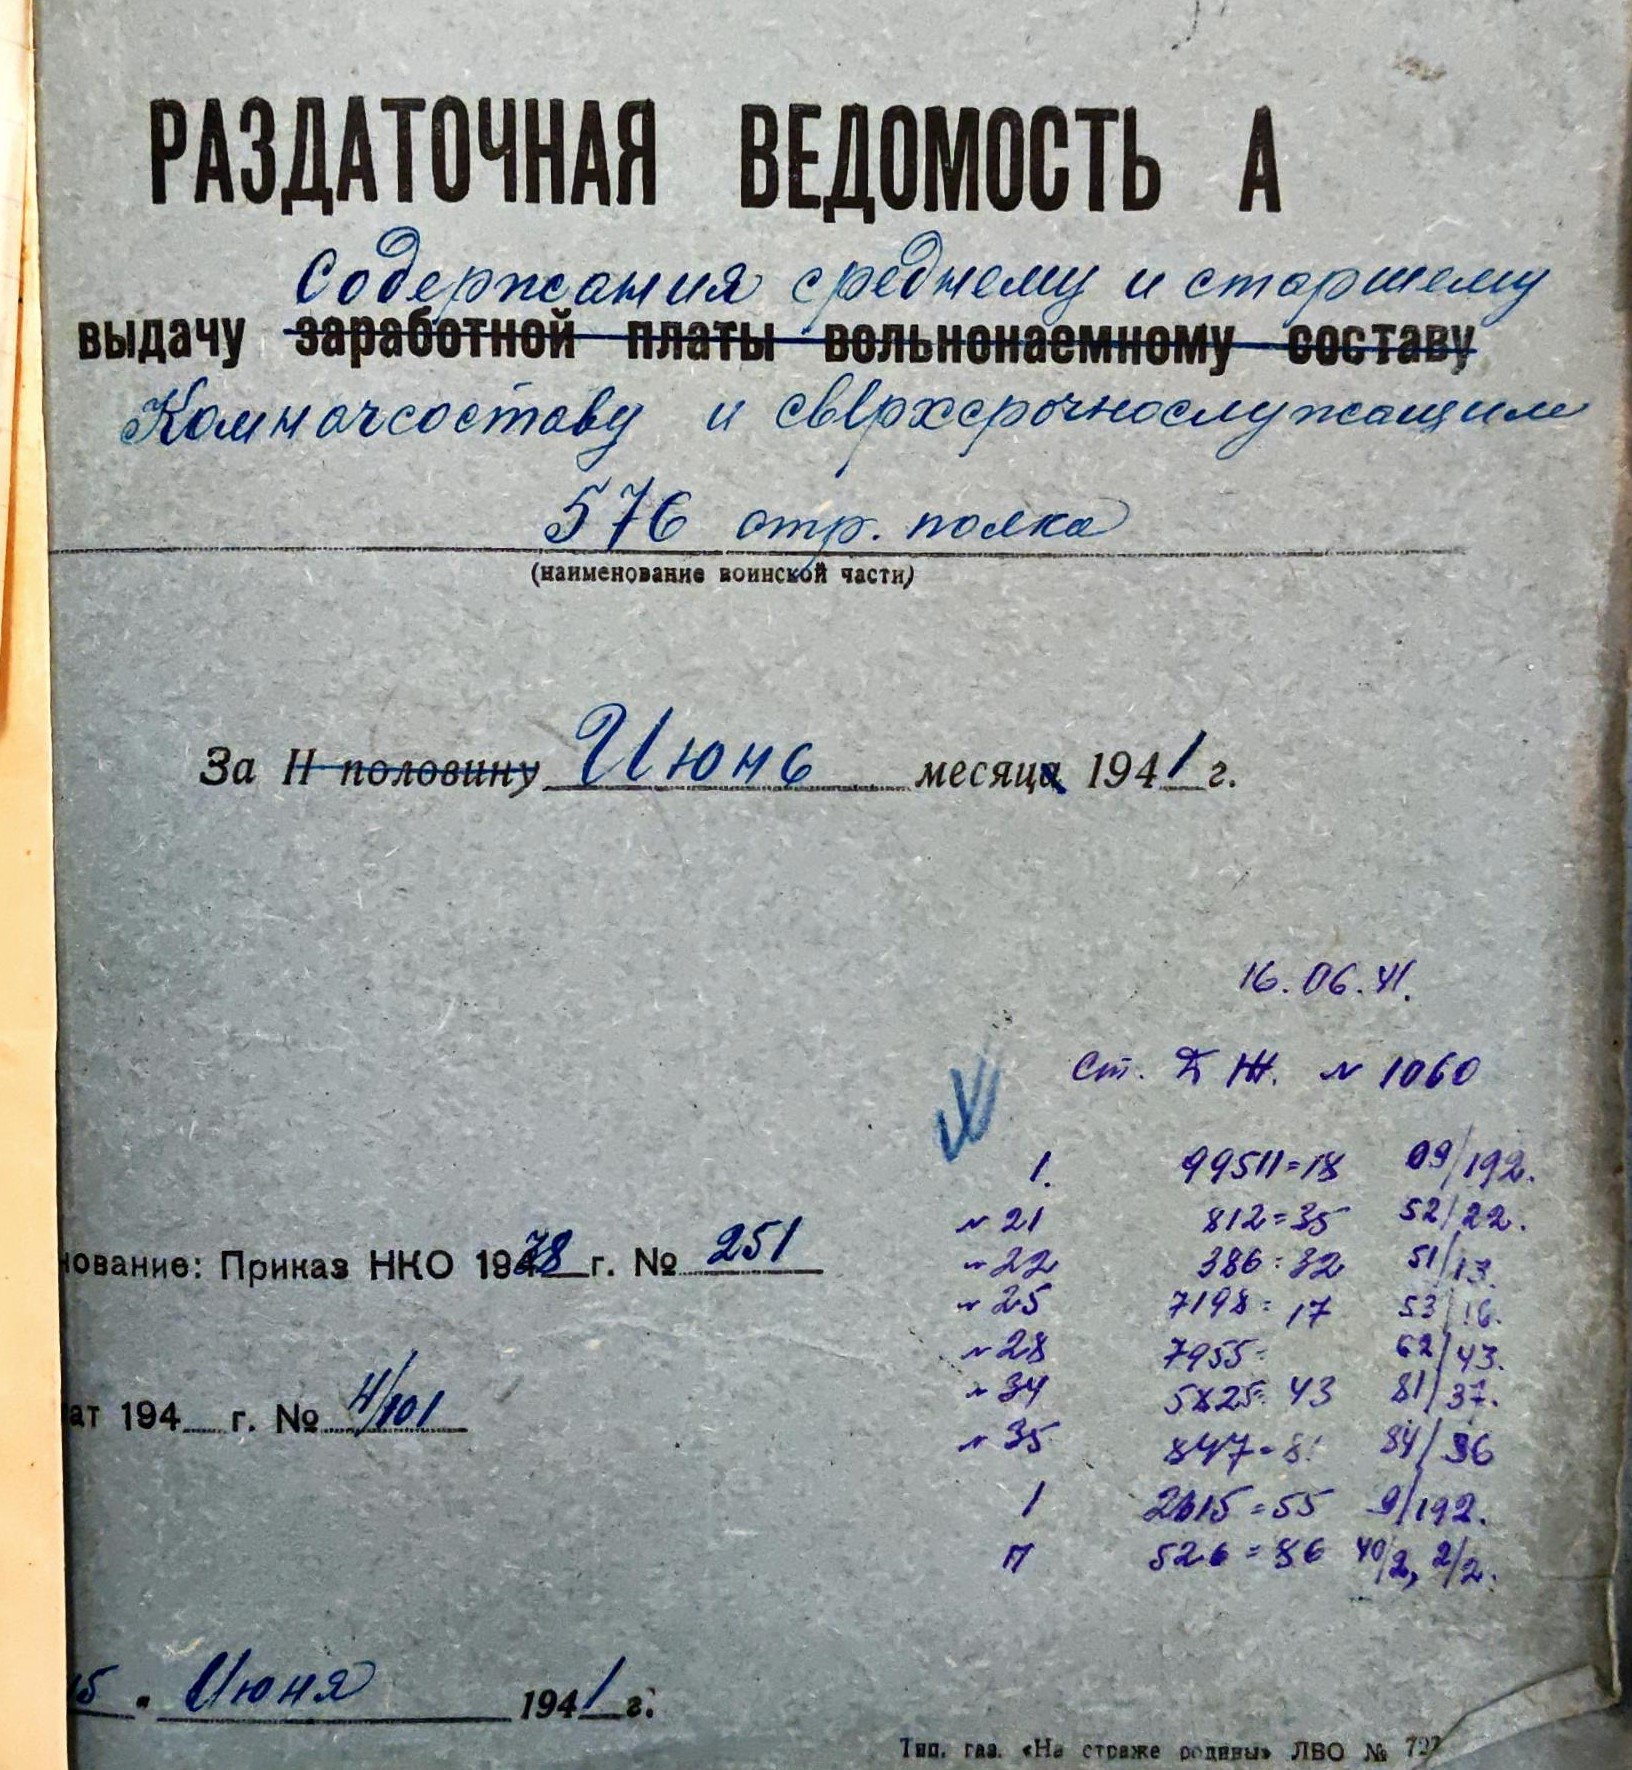 РАЗДАТОЧНАЯ ВЕДОМОСТЬ А
Содержания среднему и старшему
выдачу заработной платы вольнонаемному составу
Комначсоставу и сверхсрочнослужащим
576 стр. полка
(наименование воинской части)
За II половину Июнь месяца 1941 г.
16.06.41.
Ст. № 1060
1. 99511=18 09/192.
№ 21 812=35 52/22.
№ 22 386=32 51/13.
№ 25 7198=17 53/16.
№ 28 7955= 62/43.
№ 34 5825=43 81/37.
№ 35 847= 84/36
1 2615=55 9/192.
П 526=86 40/2, 2/2.
нование: Приказ НКО 1938 г. № 251
ат 194 г. № 4/101
15 " Июня 1941 г.
Тип. газ. «На страже родины» ЛВО № 727